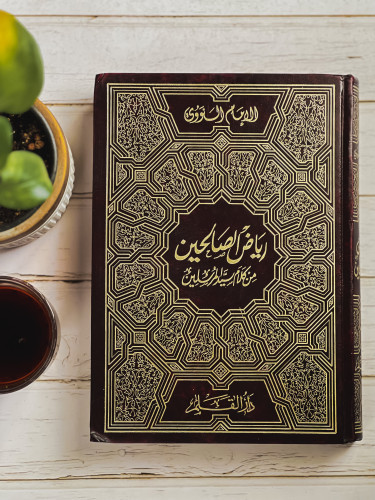 الإمام النووي
رياض الصالحين
من كلام سيد المرسلين
دار القلم